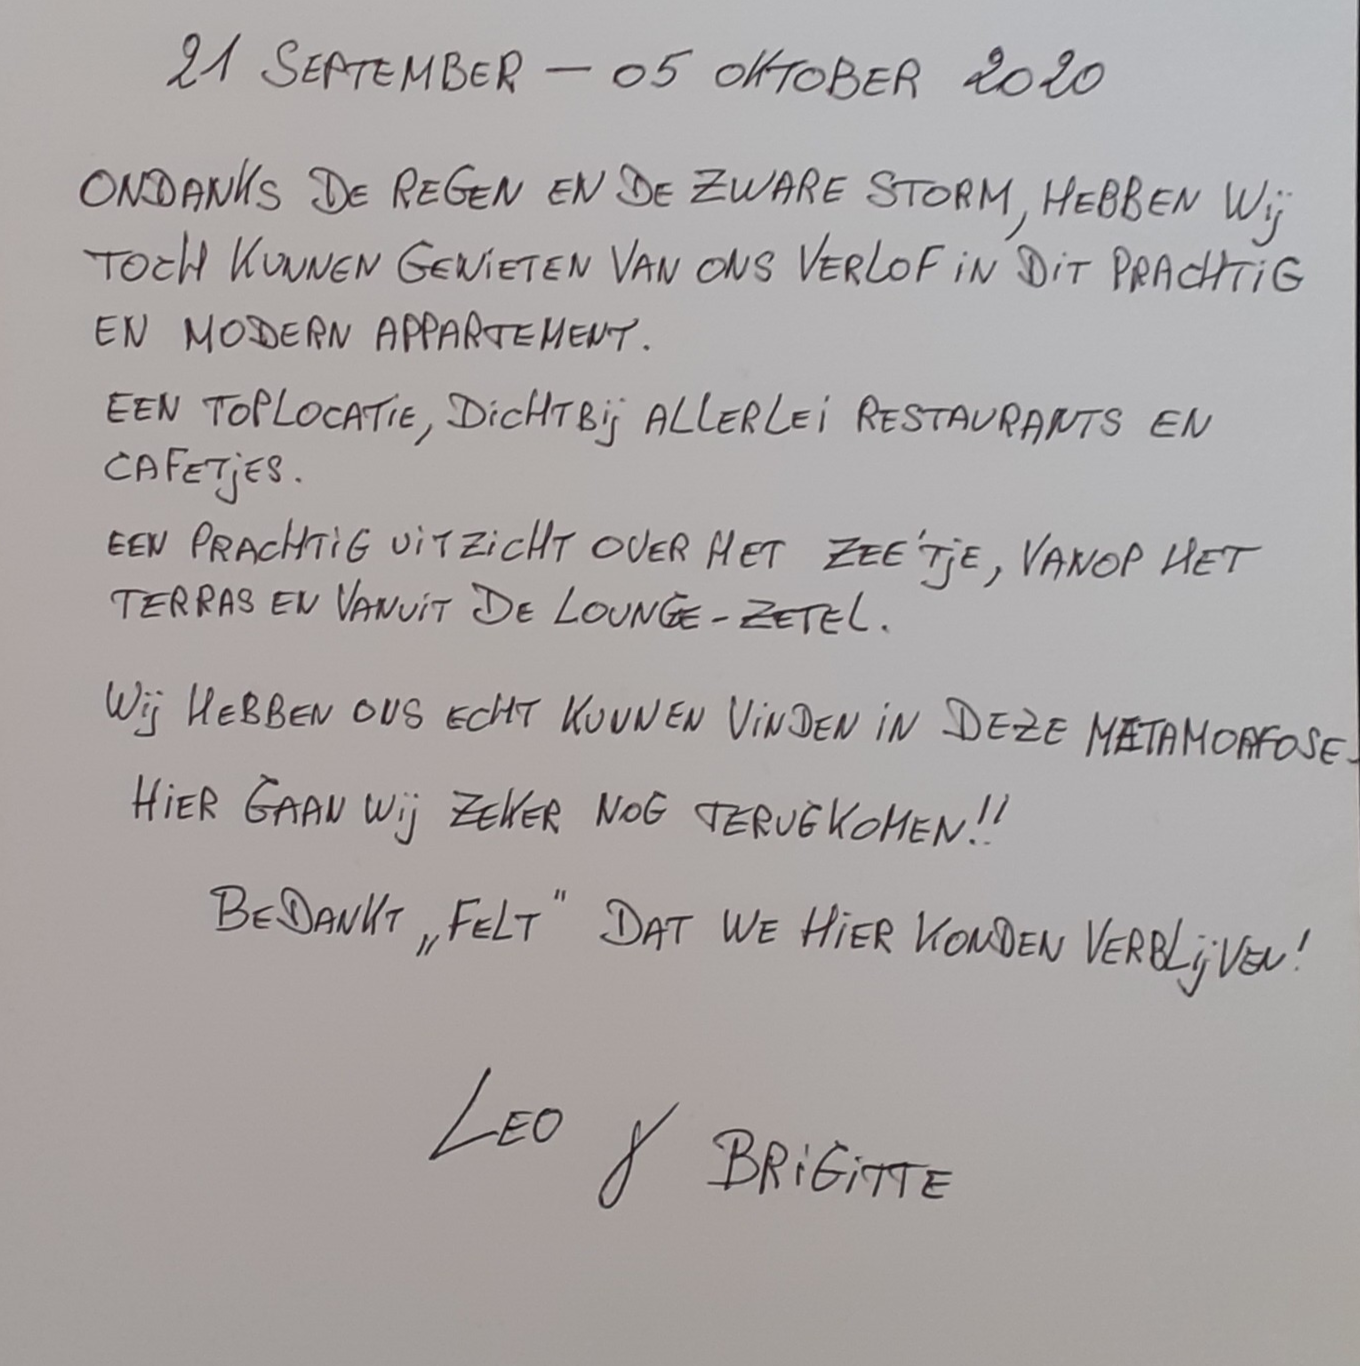 21 SEPTEMBER - 05 OKTOBER 2020
ONDANKS DE REGEN EN DE ZWARE STORM, HEBBEN Wij
TOCH KUNNEN GENiETEN VAN ONS VERLOF iN DiT PRACHTiG
EN MODERN APPARTEMENT.
EEN TOPLOCATiE, DiCHTBij ALLERLEi RESTAURANTS EN
CAFETjES.
EEN PRACHTiG UiTZiCHT OVER HET ZEE'TjE, VANOP HET
TERRAS EN VANUiT DE LOUNGE-ZETEL.
Wij HEBBEN ONS ECHT KUNNEN ViNDEN iN DEZE METAMORFOSE.
HiER GAAN Wij ZEKER NOG TERUGKOMEN!!
BEDANKT „FELT" DAT WE HiER KONDEN VERBLijVEN!
LEO & BRiGiTTE